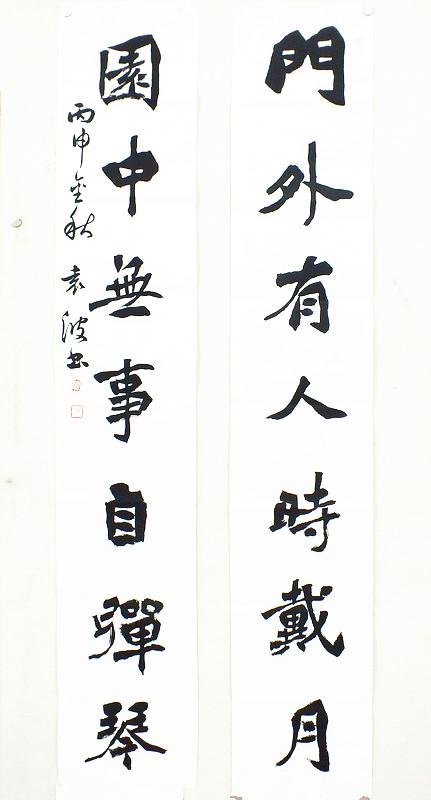 門外有人時戴月
園中無事自彈琴
丙申金秋
袁波書